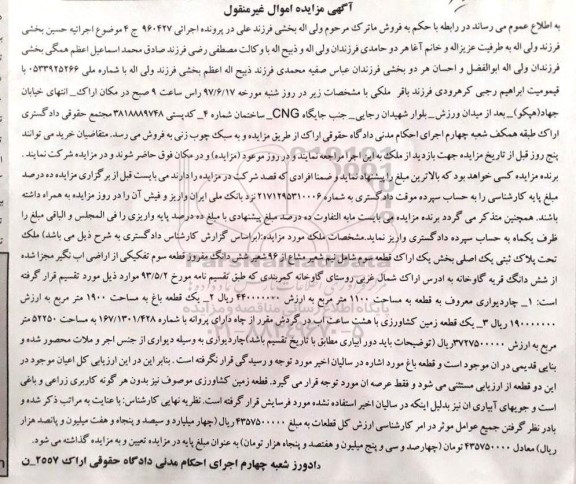 آگهی مزایده اموال غیرمنقول
به اطلاع عموم می رساند در رابطه با حکم به فروش ماترک مرحوم ولی اله بخشی فرزند علی در پرونده اجرائی ۹۶۰۴۲۷ ج ۴ موضوع اجرائیه حسین بخشی
فرزند ولی اله به طرفیت عزیزاله و خانم آغا هر دو حامدی فرزندان ولی اله و ذبیح اله با وکالت مصطفی رضی فرزند صادق محمد اسماعیل اعظم همگی بخشی
فرزندان ولی اله ابوالفضل و احسان هر دو بخشی فرزندان عباس صفیه محمدی فرزند ذبیح اله اعظم بخشی فرزند ولی اله با شماره ملی ۰۵۳۳۹۲۵۲۶۶ با
قیمومیت ابراهیم رجبی کرهرودی فرزند باقر ملکی با مشخصات زیر در روز شنبه مورخه ۹۷/۶/۱۷ راس ساعت ۹ صبح در مکان اراک_ انتهای خیابان
جهاد(هپکو)_ بعد از میدان ورزش_ بلوار شهیدان رجایی_ جنب جایگاه CNG_ ساختمان شماره ۴_ کدپستی ۳۸۱۸۸۸۹۷۴۸ مجتمع حقوقی دادگستری
اراک طبقه همکف شعبه چهارم اجرای احکام مدنی دادگاه حقوقی اراک از طریق مزایده و به سبک چوب زنی به فروش می رسد. متقاضیان خرید می توانند
پنج روز قبل از تاریخ مزایده جهت بازدید از ملک به این اجرا مراجعه نمایند و در روز موعود (مزایده) و در مکان فوق حاضر شوند و در مزایده شرکت نمایند .
برنده مزایده کسی خواهد بود که بالاترین مبلغ را پیشنهاد نماید و ضمنا افرادی که قصد شرکت در مزایده را دارند می بایست قبل از برگزاری مزایده ده درصد
مبلغ پایه کارشناسی را به حساب سپرده موقت دادگستری به شماره ۲۱۷۱۲۹۵۳۱۰۰۰۶ نزد بانک ملی ایران واریز و فیش آن را در روز مزایده به همراه داشته
باشند. همچنین متذکر می گردد برنده مزایده می بایست مابه التفاوت ده درصد مبلغ پیشنهادی با مبلغ ده درصد پایه واریزی را فی المجلس و الباقی مبلغ را
ظرف یکماه به حساب سپرده دادگستری واریز نماید.مشخصات ملک مورد مزایده:(براساس گزارش کارشناس دادگستری به شرح ذیل می باشد) ملک
تحت پلاک ثبتی یک اصلی بخش یک اراک قطعه سوم شامل نیم شعیر مشاع از ۹۶ شعیر شش دانگ مفروز قطعه سوم تفکیکی از اراضی اب نگیر مجزا شده
از شش دانگ قریه گاوخانه به ادرس اراک شمال غربی روستای گاوخانه کمربندی که طبق تقسیم نامه مورخ ۹۳/۵/۲ موارد ذیل مورد تقسیم قرار گرفته
است: ۱_ چاردیواری معروف به قطعه به مساحت ۱۱۰۰ متر مربع به ارزش ۴۴۰۰۰۰۰۰۰ ریال ۲_ یک قطعه باغ به مساحت ۱۹۰۰ متر مربع به ارزش
۱۹۰۰۰۰۰۰۰ ریال ۳_ یک قطعه زمین کشاورزی با هشت ساعت آب در گردش مقرر از چاه دارای پروانه با شماره ۱۶۷/۱۳۰۱/۴۲۸ به مساحت ۵۲۲۵۰ متر
مربع به ارزش ۳۷۲۷۵۰۰۰۰۰ ریال (توضیحات باید دور آبیاری مطابق با تاریخ تقسیم باشد)چاردیواری به وسیله دیواری از جنس اجر و ملات محصور شده و
بنایی قدیمی در ان موجود است و قطعه باغ مورد اشاره در سالیان اخیر مورد توجه و رسیدگی قرار نگرفته است . بنابر این در این ارزیابی کل اعیان موجود در
این دو قطعه از ارزیابی مستثنی می شود و فقط عرصه ان مورد توجه قرار می گیرد. قطعه زمین کشاورزی موصوف نیز بدون هر گونه کاربری زراعی و باغی
است و جویهای آبیاری ان نیز بدلیل اینکه در سالیان اخیر استفاده نشده مورد فرسایش قرار گرفته است. نظریه نهایی کارشناس: با عنایت به مراتب ذکر شده و
بادر نظر گرفتن جمیع عوامل موثر در امر کارشناسی ارزش کل قطعات به مبلغ ۴۳۵۷۵۰۰۰۰۰ ریال (چهار میلیارد و سیصد و پنجاه و هفت میلیون و پانصد هزار
ریال) معادل ۴۳۵۷۵۰۰۰۰ تومان (چهارصد و سی و پنج میلیون و هفتصد و پنجاه هزار تومان) به عنوان مبلغ پایه در مزایده تعیین و به مزایده گذاشته می شود.
دادورز شعبه چهارم اجرای احکام مدنی دادگاه حقوقی اراک ۲۵۵۷_ن